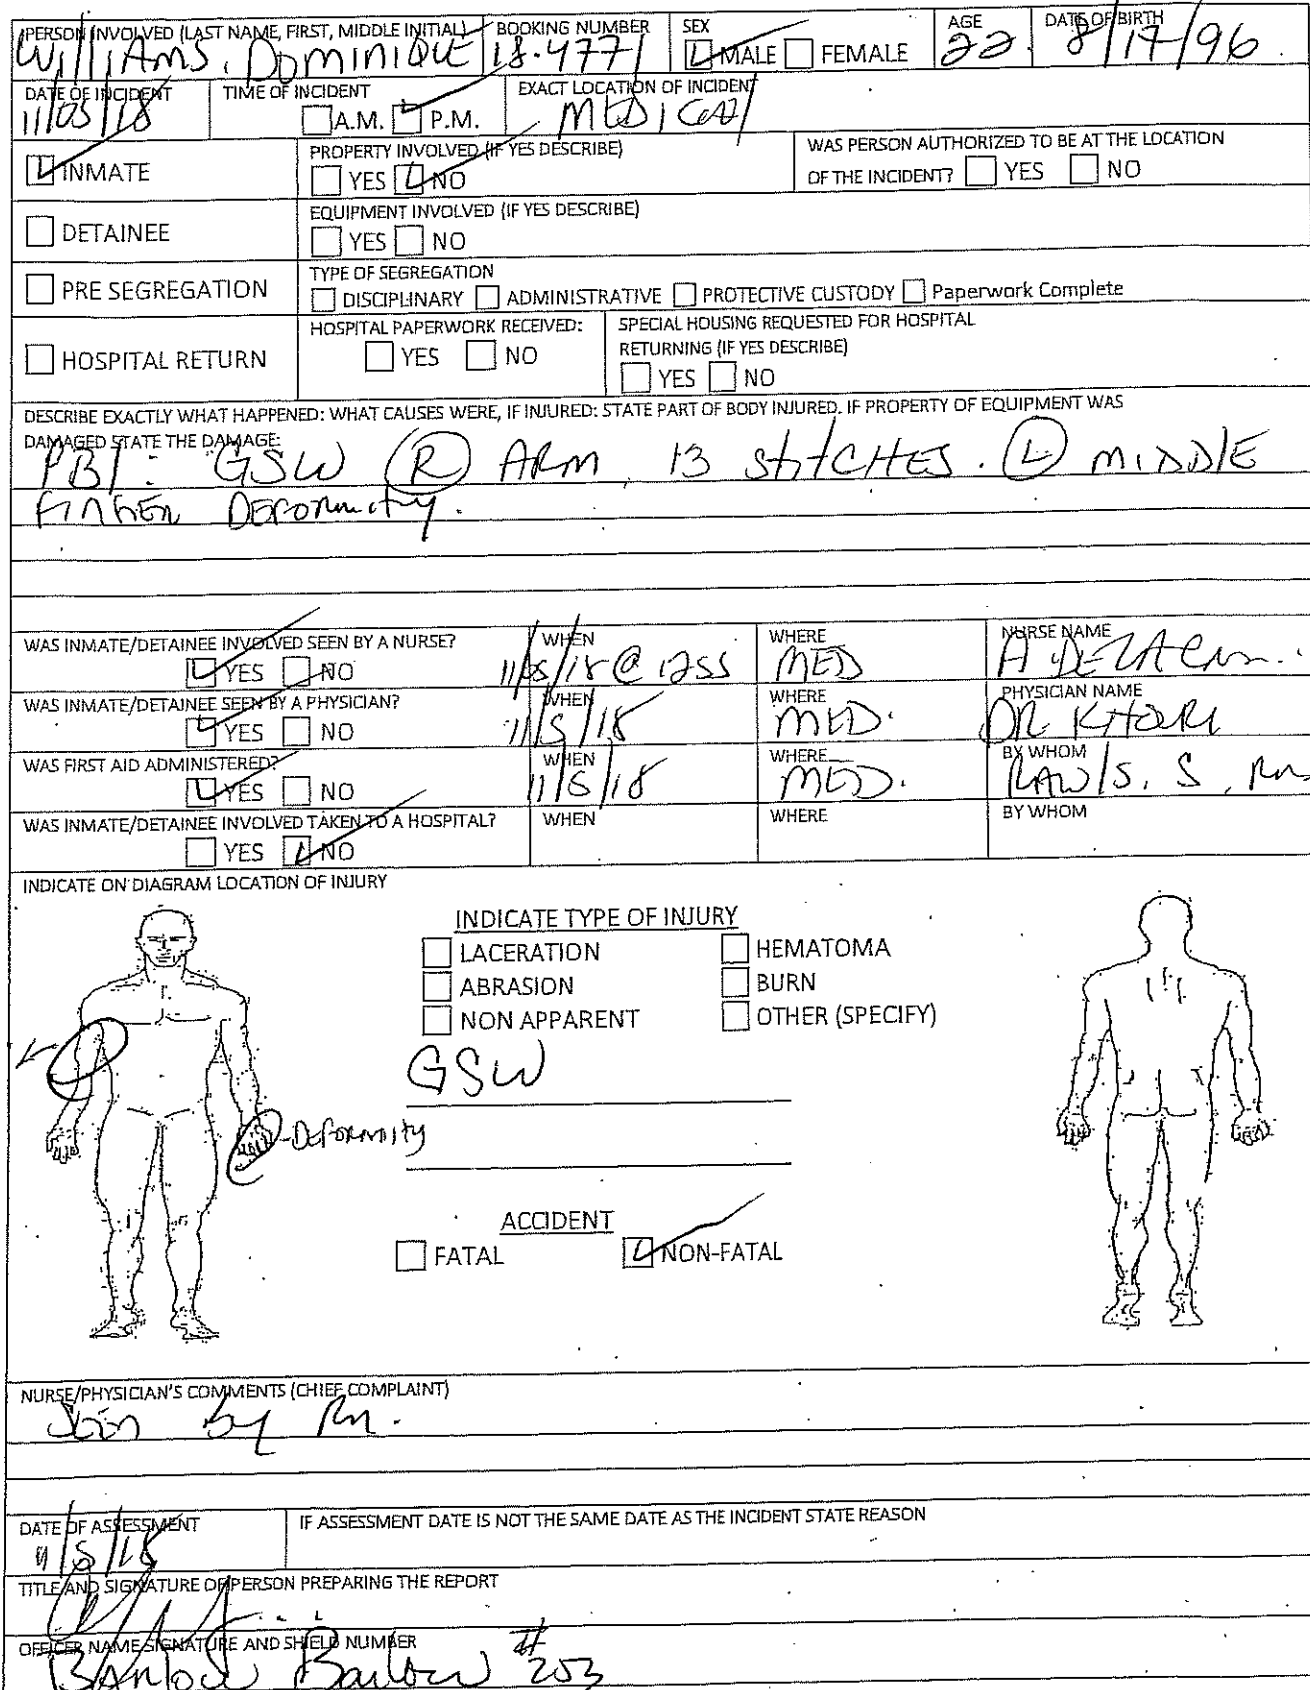 PERSON INVOLVED (LAST NAME, FIRST, MIDDLE INITIAL) BOOKING NUMBER SEX AGE DATE OF BIRTH
WilliAms, DOMINIQUE 18-4771 MALE FEMALE 22 8/17/96
DATE OF INCIDENT TIME OF INCIDENT EXACT LOCATION OF INCIDENT
11/05/18 A.M. P.M. MEDICAl
INMATE PROPERTY INVOLVED (IF YES DESCRIBE) WAS PERSON AUTHORIZED TO BE AT THE LOCATION
YES NO OF THE INCIDENT? YES NO
DETAINEE EQUIPMENT INVOLVED (IF YES DESCRIBE)
YES NO
PRE SEGREGATION TYPE OF SEGREGATION
DISCIPLINARY ADMINISTRATIVE PROTECTIVE CUSTODY Paperwork Complete
HOSPITAL RETURN HOSPITAL PAPERWORK RECEIVED: SPECIAL HOUSING REQUESTED FOR HOSPITAL
YES NO RETURNING (IF YES DESCRIBE)
YES NO
DESCRIBE EXACTLY WHAT HAPPENED: WHAT CAUSES WERE, IF INJURED: STATE PART OF BODY INJURED. IF PROPERTY OF EQUIPMENT WAS
DAMAGED STATE THE DAMAGE:
PBI: GSW R ARM, 13 stitCHES. L MIDDlE
FINGER DEFORmity.
WAS INMATE/DETAINEE INVOLVED SEEN BY A NURSE? WHEN WHERE NURSE NAME
YES NO 11/05/18 @ 1255 MED A
WAS INMATE/DETAINEE SEEN BY A PHYSICIAN? WHEN WHERE PHYSICIAN NAME
YES NO 11/5/18 MED. DR. KHOURI
WAS FIRST AID ADMINISTERED? WHEN WHERE BY WHOM
YES NO 11/5/18 MED. RAWlS. S, Rn
WAS INMATE/DETAINEE INVOLVED TAKEN TO A HOSPITAL? WHEN WHERE BY WHOM
YES NO
INDICATE ON DIAGRAM LOCATION OF INJURY
INDICATE TYPE OF INJURY
LACERATION HEMATOMA
ABRASION BURN
NON APPARENT OTHER (SPECIFY)
GSW
-DEFORMITY
ACCIDENT
FATAL NON-FATAL
NURSE/PHYSICIAN'S COMMENTS (CHIEF COMPLAINT)
Seen by Rn.
DATE OF ASSESSMENT IF ASSESSMENT DATE IS NOT THE SAME DATE AS THE INCIDENT STATE REASON
11/5/18
TITLE AND SIGNATURE OF PERSON PREPARING THE REPORT
OFFICER NAME SIGNATURE AND SHIELD NUMBER
BARlow Barlow #203